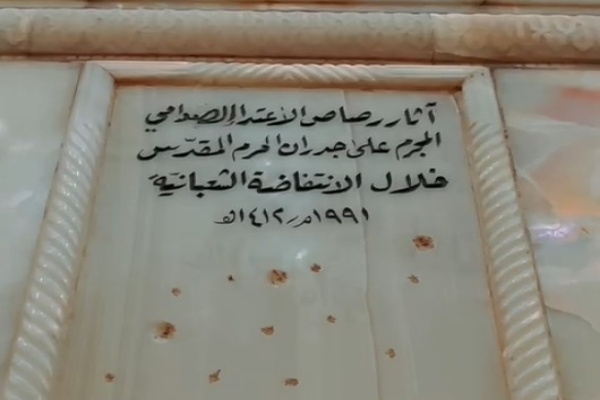 آثار رصاص الأعتداء الصدامي
المجرم على جدران الحرم المقدّس
خلال الانتفاضة الشعبانيّة
١٩٩١م/١٤١٢هـ